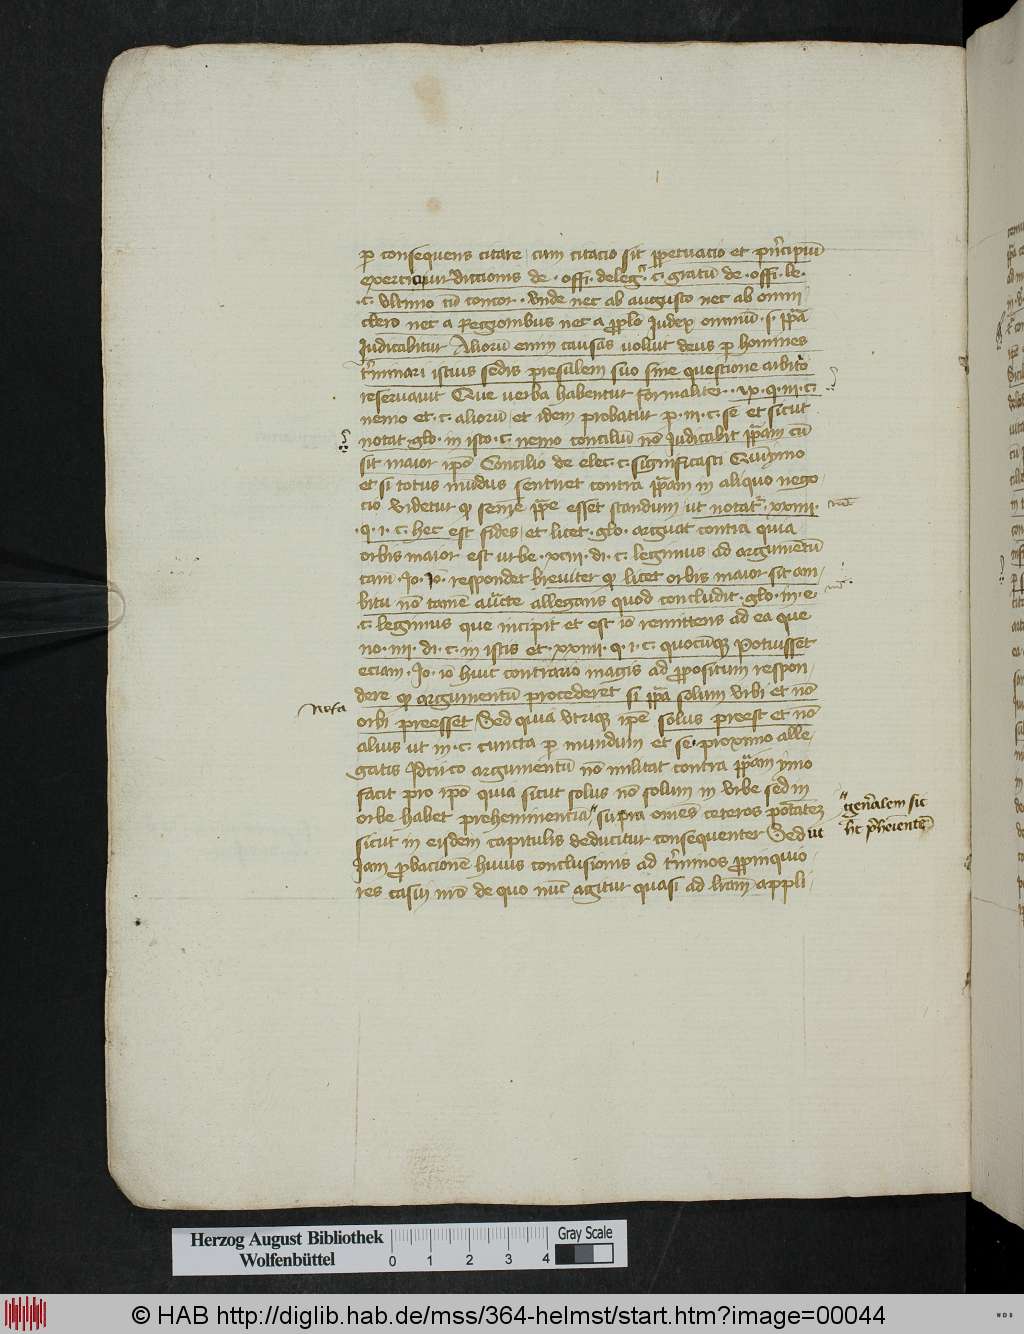 ꝑ consequens citare cum citacio sit ꝑpetuacio et pͥncipiū
exercicij iurdiccionis de · offi · deleg · c · gratū de · offi · le ·
· c · vltimo cū concor · vnde nec ab augusto nec ab omni
clero nec a Regionibus nec a pplo Judex omniū · s · ppa
Judicabitur Aliorū enim causas voluit deus ꝑ homines
tͬminari istius sedis presulem suo sine questione arbitͦ
reseruauit Que verba habentur formaliter · ix · q · iii · c ·
nemo et · c · aliorū et idem probatur ꝑ · iii · c · se et sicut
notat · glo · in isto · c · nemo conciliū nō Judicabit ppam cū
sit maior ipō Concilio de elec · c · significasti Quīymo
et si totus mūdus sentiret contra ppam in aliquo nego
cio videtur ꝙ senīe ppe esset standum ut notat · xxiiii ·
· q · i · c · hec est fides et licet · glo · arguat contra quia
orbis maior est vrbe · xciii · di · c · legimus ad argumētū
tam · Jo · Jo · respondet breuiter ꝙ licet orbis maior sit am
bitu nō tamē auc̄te allegans quod concludit · glo · in · e ·
· c · legimus que incipit et est io remittens ad ea que
no · iiii · di · c · in istis et · xxiiii · q · i · c · quocūqꝫ Potuisset
eciam · Jo · io huic contrario magis ad ꝓpositum respon
dere ꝙ argumentū procederet si ppa solum vrbi et nō
Nota
orbi preesset Sed quia vtriqꝫ ipe solus preest et nō
alius ut in · c · cuncta ꝑ mundum et se · proximo alle
gatis Jdcirco argumentū nō militat contra ppam ymo
facit pro ipō quia sicut solus nō solum in vrbe sed in
orbe habet preheminenciā suꝑra omēs ceteros potates
gen̄alem sic
hc p̄hoientē
sicut in eisdem capitulis deducitur consequenter Sed ut
Jam ꝓbacionē huius conclusionis ad tͬminos ꝓpinquio
res casui nro de quo nūc agitur quasi ad lr̄am appli
Herzog August Bibliothek
Wolfenbüttel
0 1 2 3 4
Gray Scale
© HAB http://diglib.hab.de/mss/364-helmst/start.htm?image=00044